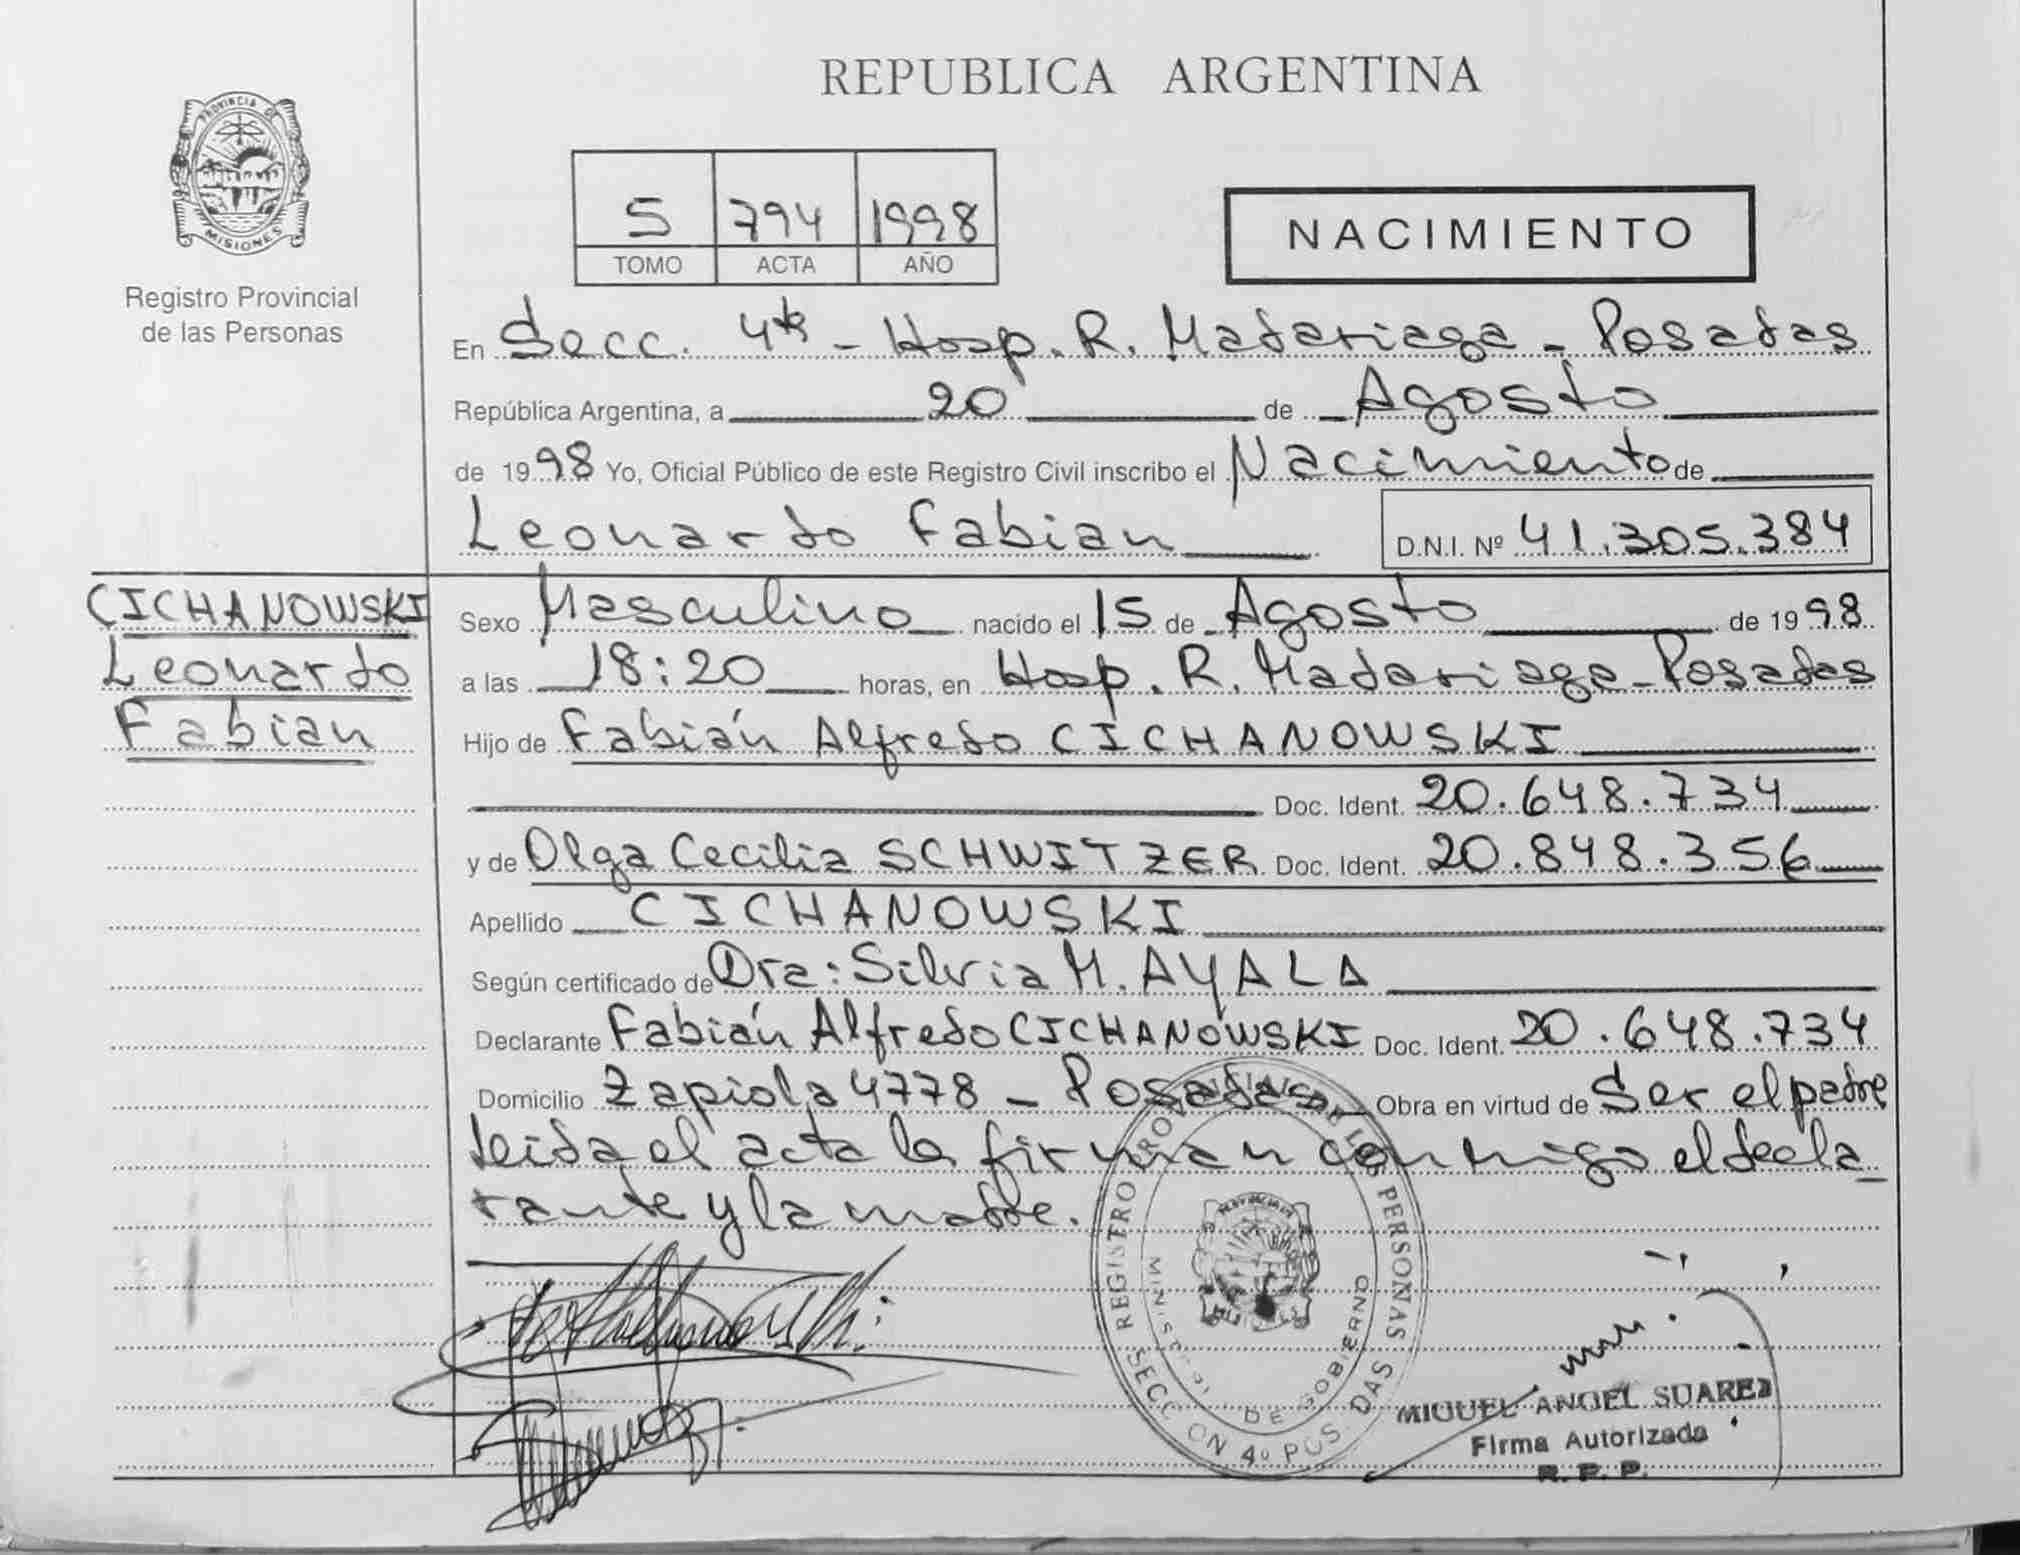 REPUBLICA ARGENTINA
PROVINCIA DE
MISIONES
Registro Provincial
de las Personas
5 794 1998
TOMO ACTA AÑO
NACIMIENTO
En Secc. 4ta - Hosp. R. Madariaga - Posadas
República Argentina, a 20 de Agosto
de 1998 Yo, Oficial Público de este Registro Civil inscribo el Nacimiento de
Leonardo Fabian D.N.I. Nº 41.305.384
CICHANOWSKI
Leonardo
Fabian
Sexo Masculino nacido el 15 de Agosto de 1998
a las 18:20 horas, en Hosp. R. Madariaga - Posadas
Hijo de Fabián Alfredo CICHANOWSKI
Doc. Ident. 20.648.734
y de Olga Cecilia SCHWITZER Doc. Ident. 20.848.356
Apellido CICHANOWSKI
Según certificado de Dra: Silvia M. AYALA
Declarante Fabián Alfredo CICHANOWSKI Doc. Ident. 20.648.734
Domicilio Zapiola 4778 - Posadas - Obra en virtud de Ser el padre
leida el acta la firman conmigo el decla_
rante y la madre.
REGISTRO PROVINCIAL DE LAS PERSONAS
MINISTERIO DE GOBIERNO
SECCION 4º POSADAS
MIGUEL ANGEL SUAREZ
Firma Autorizada
R. P. P.